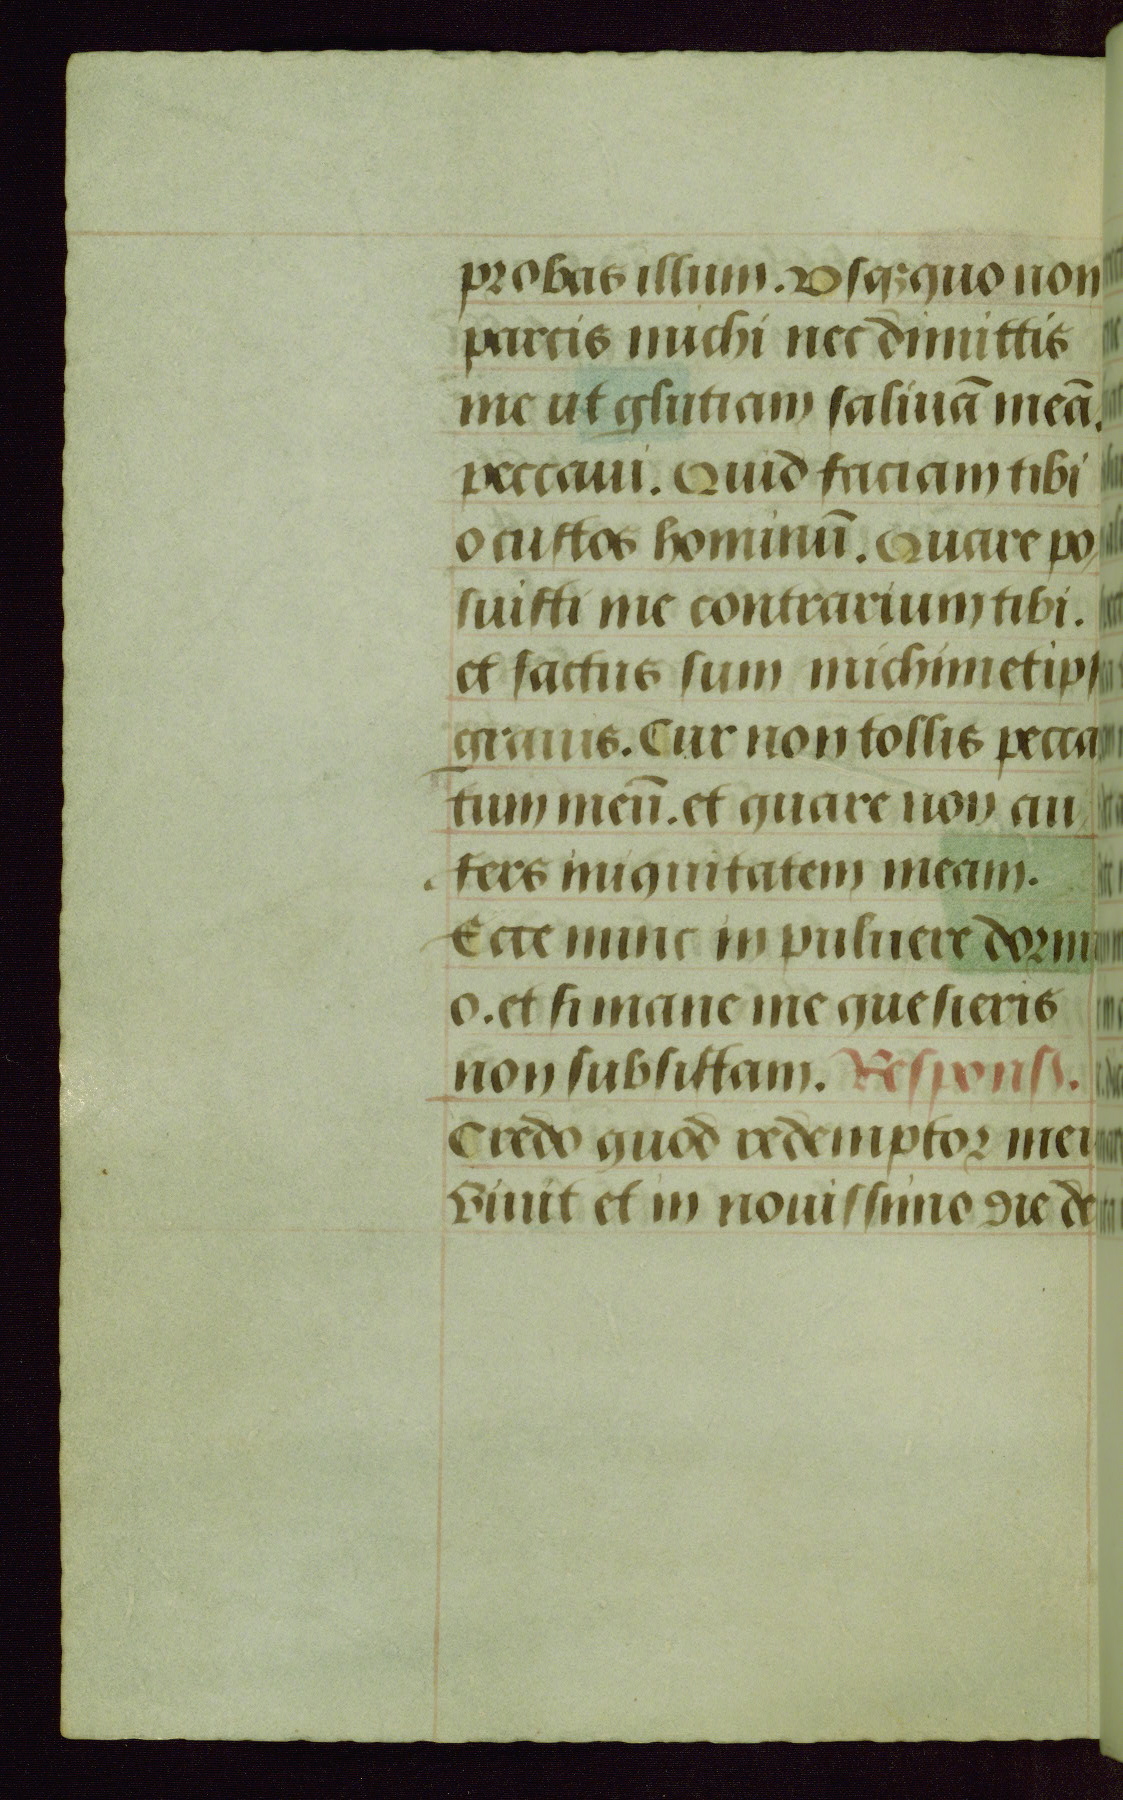 probas illum. Vsqꝫquo non
parcis michi nec dimittis
me ut glutiam saliuā meā.
peccaui. Quid faciam tibi
o custos hominū. Quare po
suisti me contrarium tibi.
et factus sum michimetipsi
grauis. Cur non tollis pecca
tum meū. et quare non au
fers iniquitatem meam.
Ecce nunc in puluere dormi
o. et si mane me quesieris
non subsistam. Respons.
Credo quod redemptor meus
viuit et in nouissimo die de